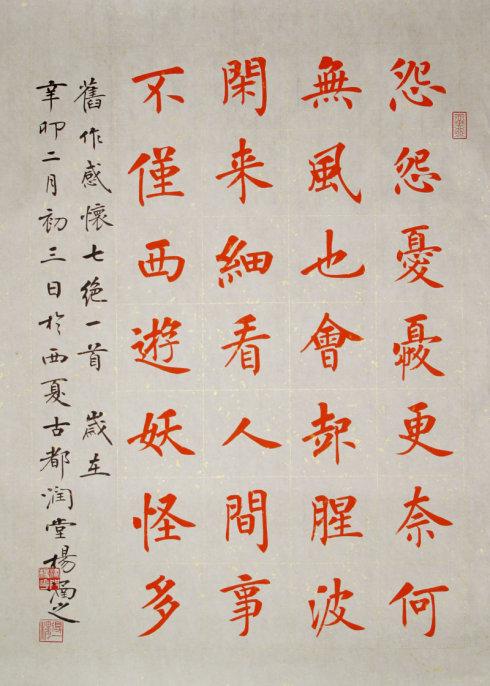 怨怨憂憂更奈何
無風也會却腥波
閑来細看人間事
不僅西遊妖怪多
舊作感懷七絶一首 歲在
辛卯二月初三日於西夏古都潤堂楊之